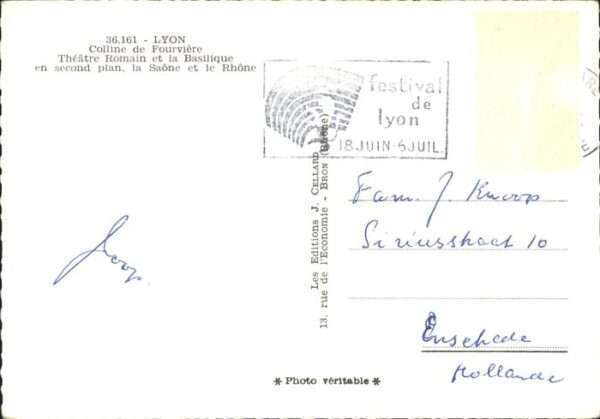 36.161 - LYON
Colline de Fourvière
Théâtre Romain et la Basilique
en second plan, la Saône et le Rhône
festival
de
lyon
18 JUIN-6 JUIL.
Les Editions J. CELLARD
13, rue de l'Economie - BRON (Rhône)
Fam. J. Knoop
Siriusstraat 10
Enschede
Hollande
Joop.
* Photo véritable *